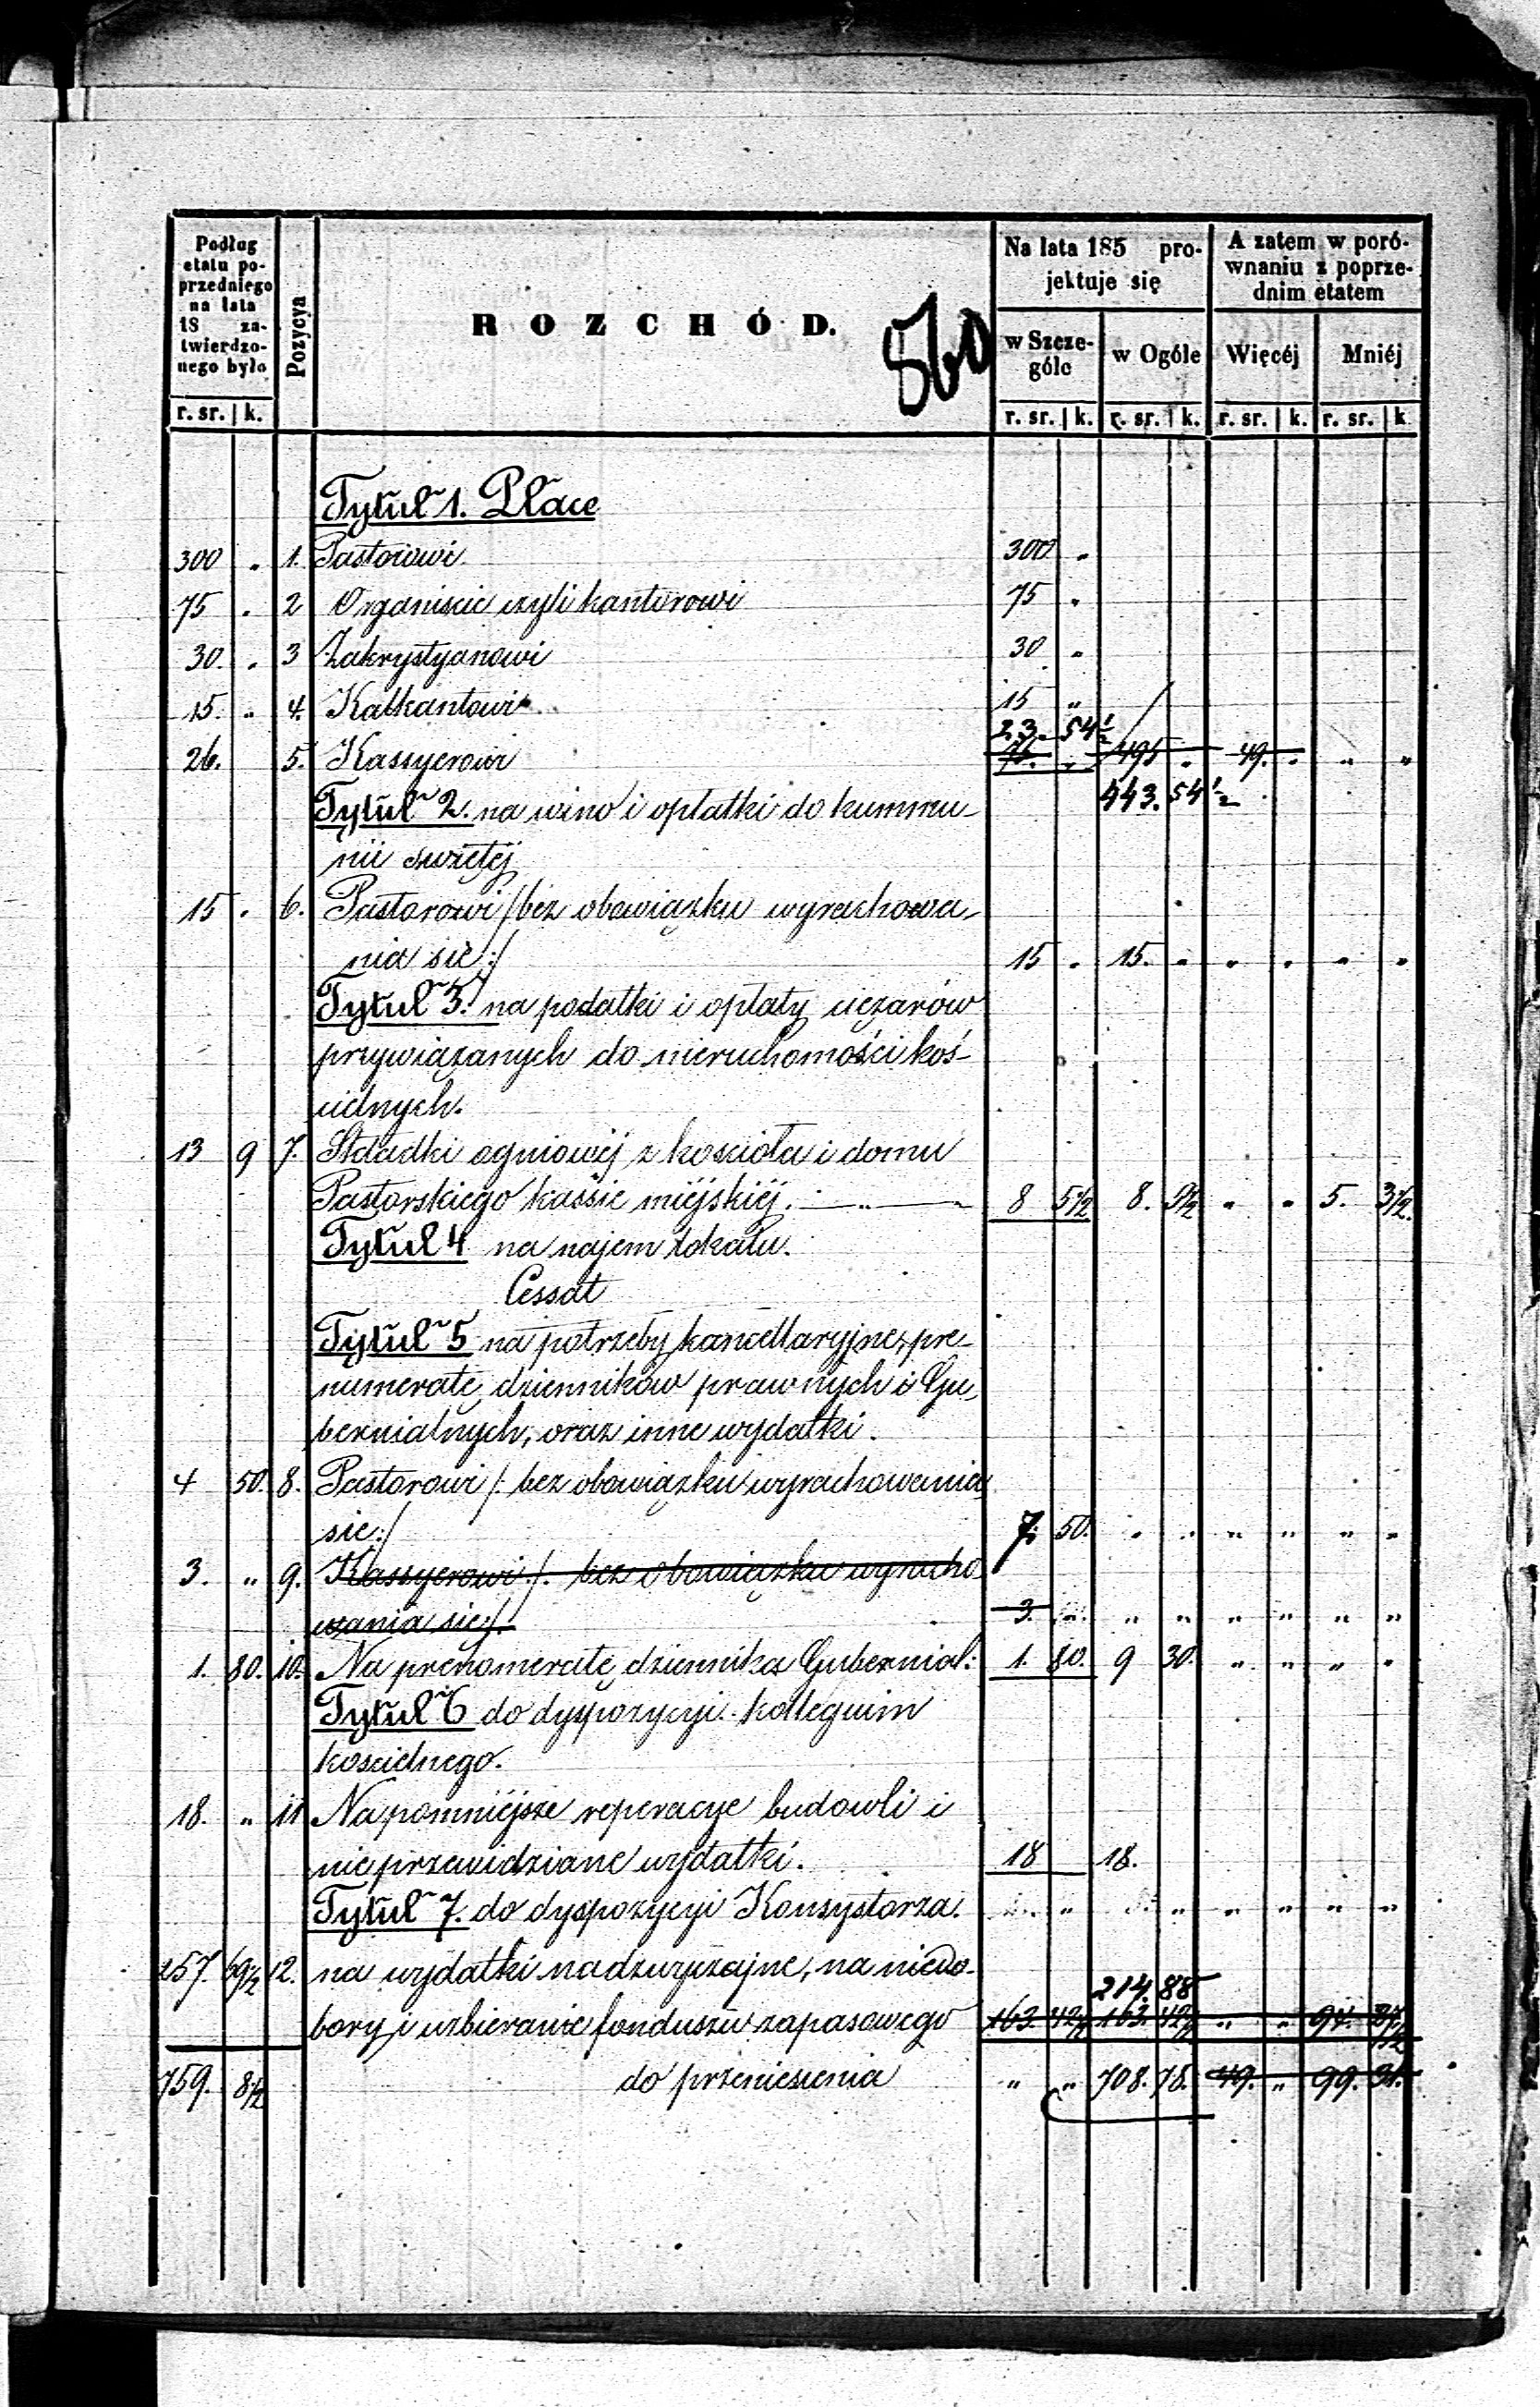 Podług etatu poprzedniego na lata 18 zatwierdzonego było
Pozycya
R O Z C H Ó D.
560
Na lata 185 projektuje się
A zatem w porównaniu z poprzednim etatem
w Szczególe
w Ogóle
Więcéj
Mniéj
r. sr. | k. r. sr. | k. r. sr. | k. r. sr. | k. r. sr. | k
Tytuł 1. Płace
300 „ 1. Pastorowi 300 „
75 „ 2 Organiscie czyli kantorowi 75 „
30. „ 3 Zakrystyanowi 30 „
15. „ 4. Kalkantowi 15 „
23. 54½
26. 5. Kassyerowi 75. „ 495 „ 49. „ „ „
443. 54½
Tytuł 2. na wino i opłatki do kummu-
nii swiętéj
15 „ 6. Pastorowi /bez obowiązku wyrachowa-
nia się:/ 15 „ 15. „ „ „ „ „
Tytuł 3. na podatki i opłaty ciężarów
przywiązanych do nieruchomości koś-
cielnych.
13 9 7. Składki ogniowéj z kościoła i domu
Pastorskiego kassie miejskiéj. 8 5½ 8. 5½ „ „ 5. 3½.
Tytuł 4 na najem lokalu.
Cessat
Tytuł 5 na potrzeby kancellaryjne, pre-
numeratę dzienników prawnych i Gu-
bernialnych, oraz inne wydatki.
4 50. 8. Pastorowi /: bez obowiązku wyrachowania
się:/ 7. 50. „ „ „ „ „ „
3. „ 9. Kassyerowi /: bez obowiązku wyracho-
wania się:/. 3. „ „ „ „ „ „ „
1. 80. 10. Na prenomeratę dziennika Gubernial: 1. 80. 9 30. „ „ „ „
Tytuł 6 do dyspozycyi kollegium
koscielnego.
18. „ 11 Na pomniéjsze reperacye budowli i
nieprzewidziane wydatki. 18 18.
Tytuł 7. do dyspozycyi Konsystorza. „ „ „ „ „ „ „ „
257. 69½ 12. na wydatki nadzwyczajne, na niedo-
214. 88
bory i uzbieranie funduszu zapasowego 163. 42½ 163. 42½ „ „ 94. 27½
759. 8½ do przeniesienia „ „ 708. 78. 49. „ 99. 31.